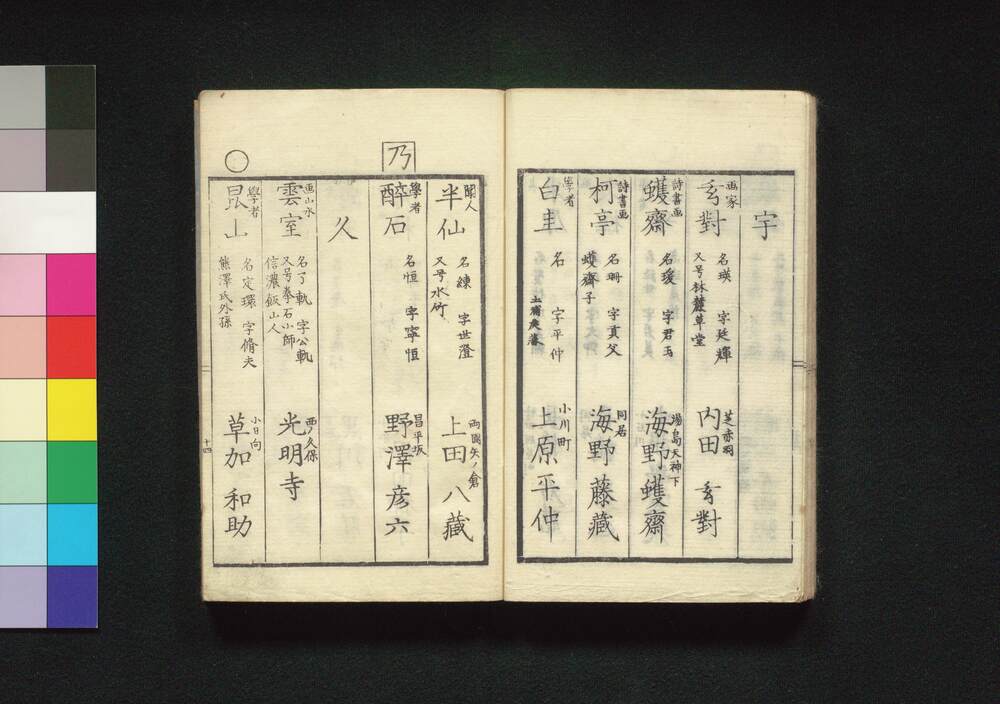 宇
画家
玄對
名瑛 字廷輝
又号林麓草堂
芝赤羽
内田 玄對
詩書画
蠖齋
名瑗 字君玉
湯島天神下
海野蠖齋
詩書画
柯亭
名珊 字貢父
蠖齋子
同居
海野藤藏
学者
白圭
名 字平仲
土浦矦藩
小川町
上原平仲
聞人
半仙
名練 字世澄
又号水竹
両國矢ノ倉
上田八藏
乃
學者
醉石
名恒 字寧恒
昌平坂
野澤彦六
久
画山水
雲室
名了軌 字公軌
又号拳石小師
信濃飯山人
西ノ久保
光明寺
○
學者
昆山
名定環 字脩夫
熊澤氏外孫
小日向
草加 和助
十四